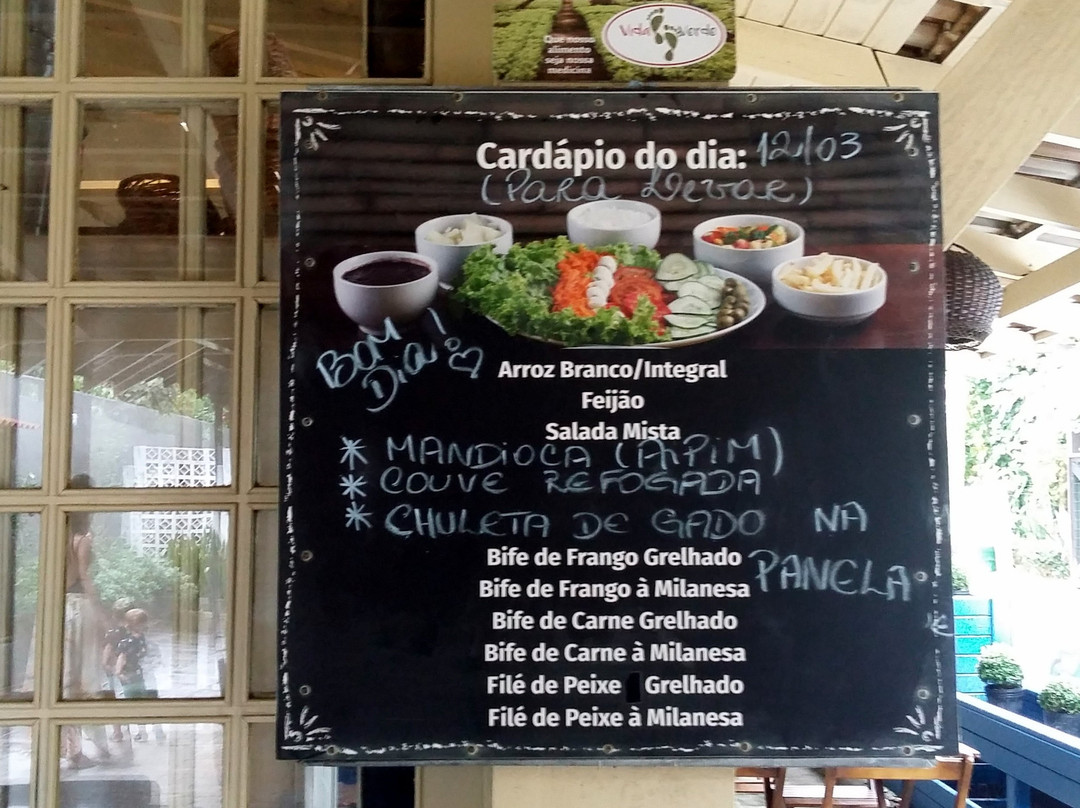 Que nosso
alimento
seja nossa
medicina
Vida Verde
Cardápio do dia: 12/03
(PARA LEVAR)
BOM
DiA!
Arroz Branco/Integral
Feijão
Salada Mista
* MANDIOCA (AIPIM)
* COUVE REFOGADA
* CHULETA DE GADO NA
PANELA
Bife de Frango Grelhado
Bife de Frango à Milanesa
Bife de Carne Grelhado
Bife de Carne à Milanesa
Filé de Peixe Grelhado
Filé de Peixe à Milanesa